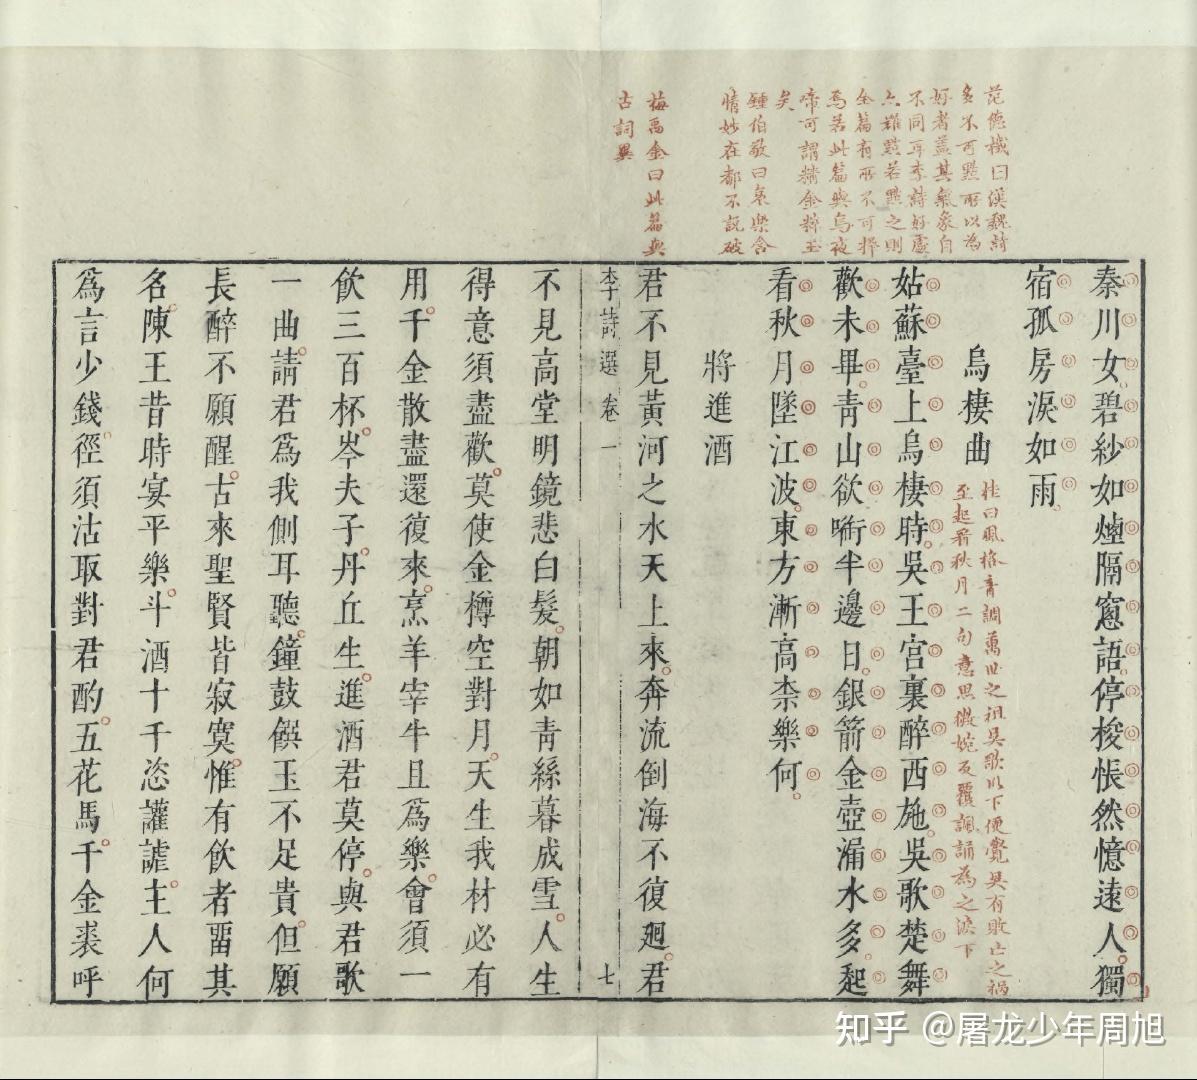 范德機曰漢魏詩
多不可點所以為
好者蓋其氣象自
不同耳李詩好處
亦難點若點之則
全篇有所不可擇
焉若此篇與烏夜
啼可謂精金粹玉
矣
鍾伯敬曰哀樂含
情妙在都不説破
梅禹金曰此篇與
古詞異
秦川女碧紗如煙隔窻語停梭悵然憶遠人獨
宿孤房淚如雨
烏棲曲
桂曰風格音調萬世之祖吳歌以下便覺具有敗亡之禍
至起看秋月二句意思微婉反覆諷誦為之淚下
姑蘇臺上烏棲時吳王宮裏醉西施吳歌楚舞
歡未畢青山欲銜半邊日銀箭金壺漏水多起
看秋月墜江波東方漸高柰樂何
將進酒
君不見黃河之水天上來奔流倒海不復廻君
李詩選 卷一 七
不見高堂明鏡悲白髮朝如青絲暮成雪人生
得意須盡歡莫使金樽空對月天生我材必有
用千金散盡還復來烹羊宰牛且爲樂會須一
飲三百杯岑夫子丹丘生進酒君莫停與君歌
一曲請君爲我側耳聽鐘鼓饌玉不足貴但願
長醉不願醒古來聖賢皆寂寞惟有飲者畱其
名陳王昔時宴平樂斗酒十千恣讙謔主人何
爲言少錢徑須沽取對君酌五花馬千金裘呼
知乎 @屠龙少年周旭